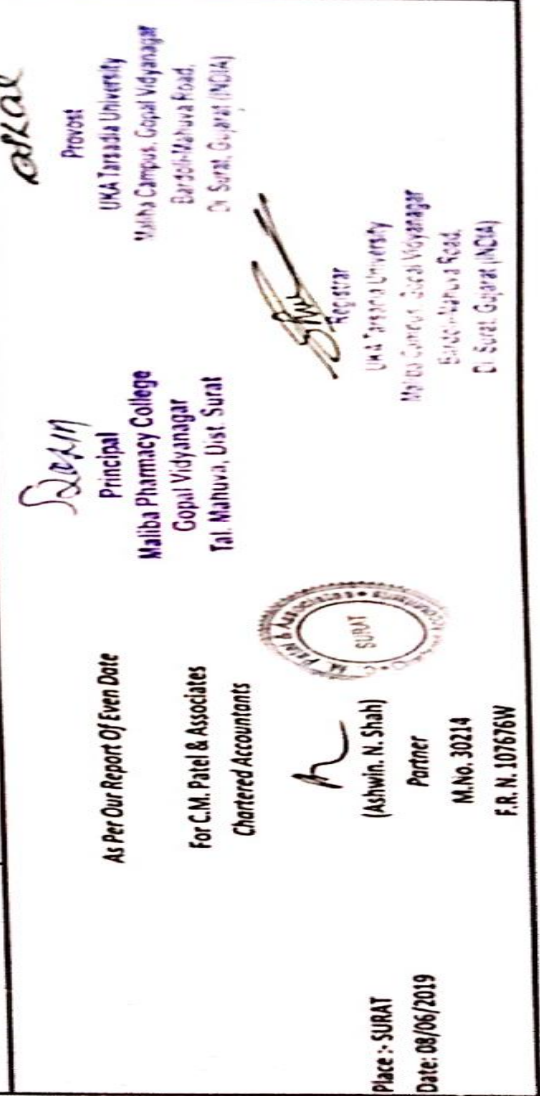 As Per Our Report Of Even Date
For C.M. Patel & Associates
Chartered Accountants
(Ashwin. N. Shah)
Partner
M.No. 30214
F.R. N. 107676W
Place :- SURAT
Date: 08/06/2019
SURAT
Principal
Maliba Pharmacy College
Gopal Vidyanagar
Tal. Mahuva, Dist. Surat
Provost
UKA Tarsadia University
Maliba Campus, Gopal Vidyanagar
Bardoli-Mahuva Road,
Di Surat, Gujarat (INDIA)
Registrar
UKA Tarsadia University
Maliba Campus, Gopal Vidyanagar
Bardoli-Mahuva Road,
Di Surat, Gujarat (INDIA)